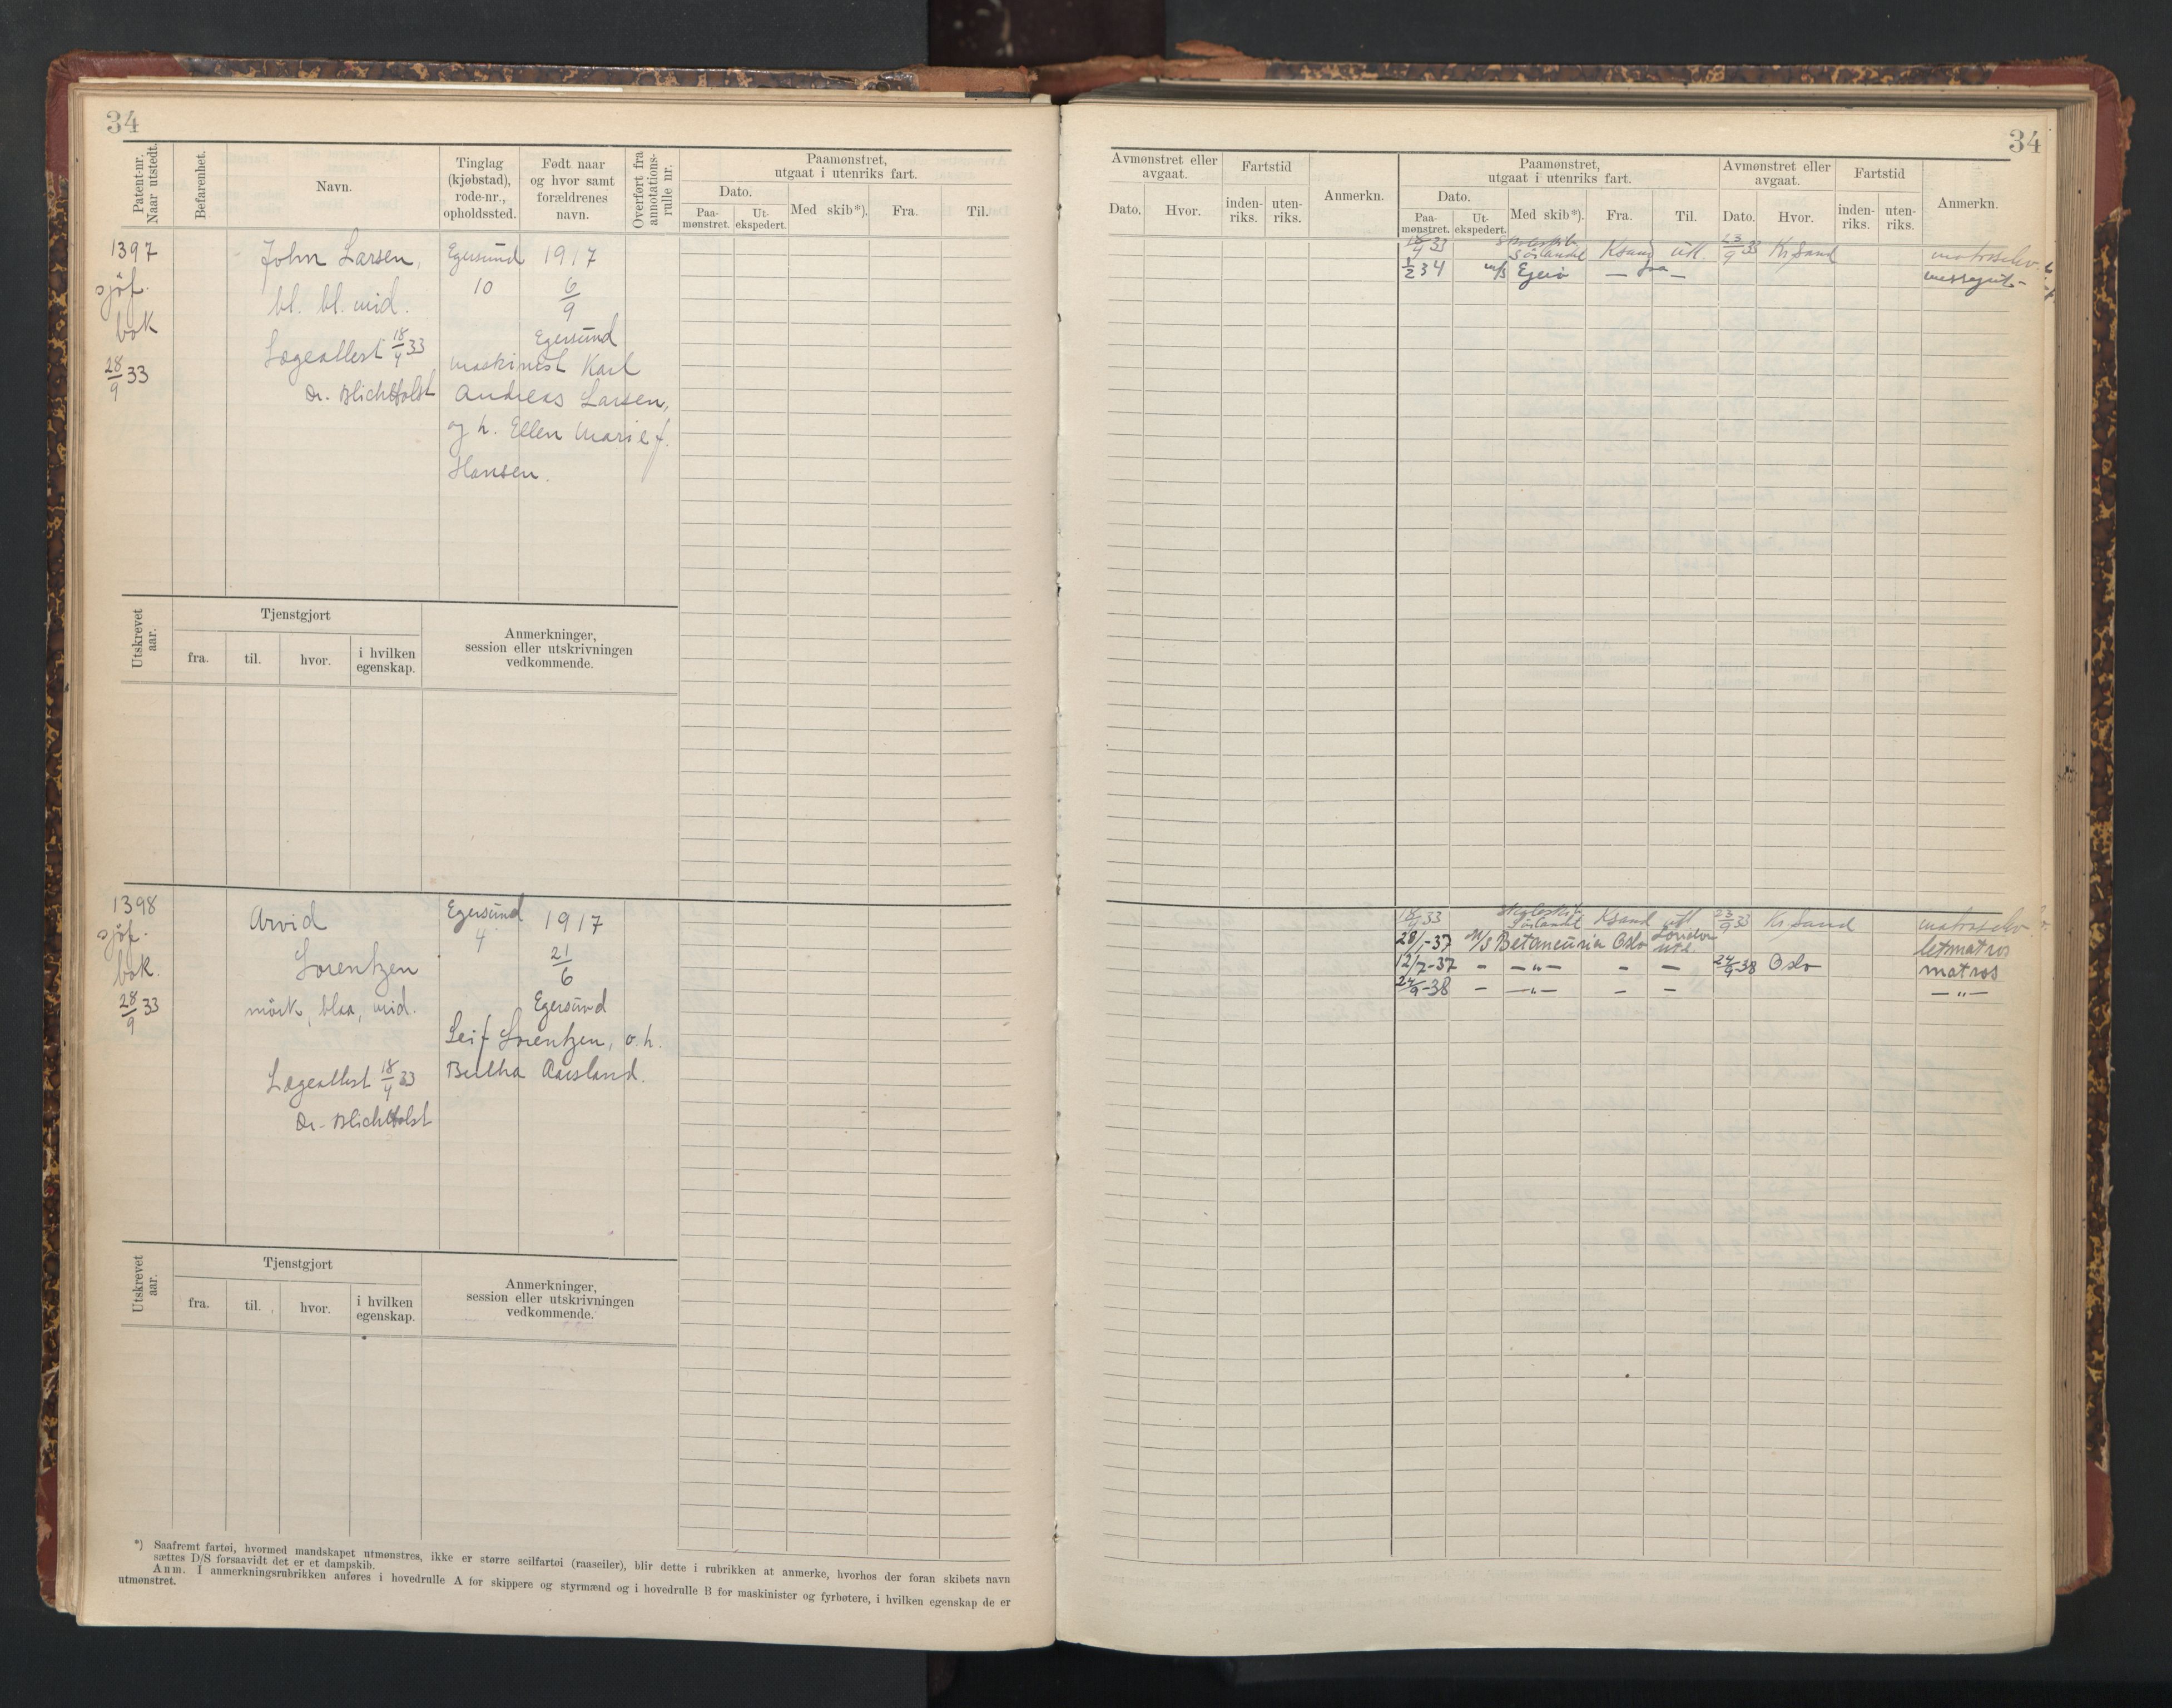 34
Patent-nr. Naar utstedt.
Befarenhet.
Navn.
Tinglag (kjøbstad), rode-nr., opholdssted.
Født naar og hvor samt forældrenes navn.
Overført fra annotations-rulle nr.
Paamønstret, utgaat i utenriks fart.
Dato.
Paa-mønstret.
Ut-ekspedert.
Med skib*).
Fra.
Til.
1397
sjöf.
bok
28/9 33
John Larsen,
bl. bl. mid.
Lægeattest 18/4 33
Dr. Blichholst
Egersund
10
1917
6/9
Egersund
maskinist Karl
Andreas Larsen,
og h. Ellen Marie f.
Hansen.
Utskrevet aar.
Tjenstgjort
fra.
til.
hvor.
i hvilken egenskap.
Anmerkninger, session eller utskrivningen vedkommende.
1398
sjöf.
bok.
28/9 33
Arvid
Lorentzen
mörk, blaa, mid.
Lægeattest 18/4 33
Dr. Blichholst
Egersund
4
1917
21/6
Egersund
Leif Lorentzen, o. h.
Bertha Aarsland.
Utskrevet aar.
Tjenstgjort
fra.
til.
hvor.
i hvilken egenskap.
Anmerkninger, session eller utskrivningen vedkommende.
*) Saafremt fartøi, hvormed mandskapet utmønstres, ikke er større seilfartøi (raaseiler), blir dette i rubrikken at anmerke, hvorhos der foran skibets navn
sættes D/S forsaavidt det er et dampskib.
Anm. I anmerkningsrubrikken anføres i hovedrulle A for skippere og styrmænd og i hovedrulle B for maskinister og fyrbøtere, i hvilken egenskap de er
utmønstret.
34
Avmønstret eller avgaat.
Dato.
Hvor.
Fartstid
inden-riks.
uten-riks.
Anmerkn.
Paamønstret, utgaat i utenriks fart.
Dato.
Paa-mønstret.
Ut-ekspedert.
Med skib*).
Fra.
Til.
Avmønstret eller avgaat.
Dato.
Hvor.
Fartstid
inden-riks.
uten-riks.
Anmerkn.
18/4 33 skoleskib Sörlandet Ksand utl. 23/9 33 Kr.sand matroselev
1/2 34 m/s Egerö
18/4 33 skoleskib Sörlandet Ksand utl. 23/9 33 Kr.sand matroselev
28/1-37 M/S Betancuria Oslo London utl. letmatros
12/7-37 - -"- - - 24/9-38 Oslo matros
24/9-38 - -"- - - -"-